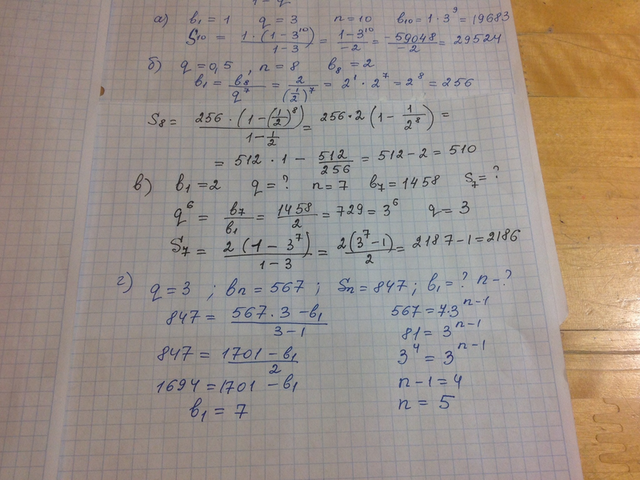 а) b₁ = 1 q = 3 n = 10 b₁₀ = 1·3⁹ = 19683
S₁₀ = 1·(1-3¹⁰)/(1-3) = (1-3¹⁰)/-2 = -59048/-2 = 29524
б) q = 0,5, n = 8 b₈ = 2
b₁ = b₈/q⁷ = 2/(1/2)⁷ = 2¹·2⁷ = 2⁸ = 256
S₈ = 256·(1-(1/2)⁸)/(1-1/2) = 256·2(1 - 1/2⁸) =
= 512·1 - 512/256 = 512-2 = 510
в) b₁ = 2 q = ? n = 7 b₇ = 1458 S₇ = ?
q⁶ = b₇/b₁ = 1458/2 = 729 = 3⁶ q = 3
S₇ = 2(1-3⁷)/(1-3) = 2(3⁷-1)/2 = 2187-1 = 2186
г) q = 3 ; bn = 567 ; Sn = 847 ; b₁ = ? n - ?
847 = (567·3 - b₁)/(3-1) 567 = 7·3ⁿ⁻¹
81 = 3ⁿ⁻¹
847 = (1701 - b₁)/2 3⁴ = 3ⁿ⁻¹
1694 = 1701 - b₁ n-1 = 4
b₁ = 7 n = 5